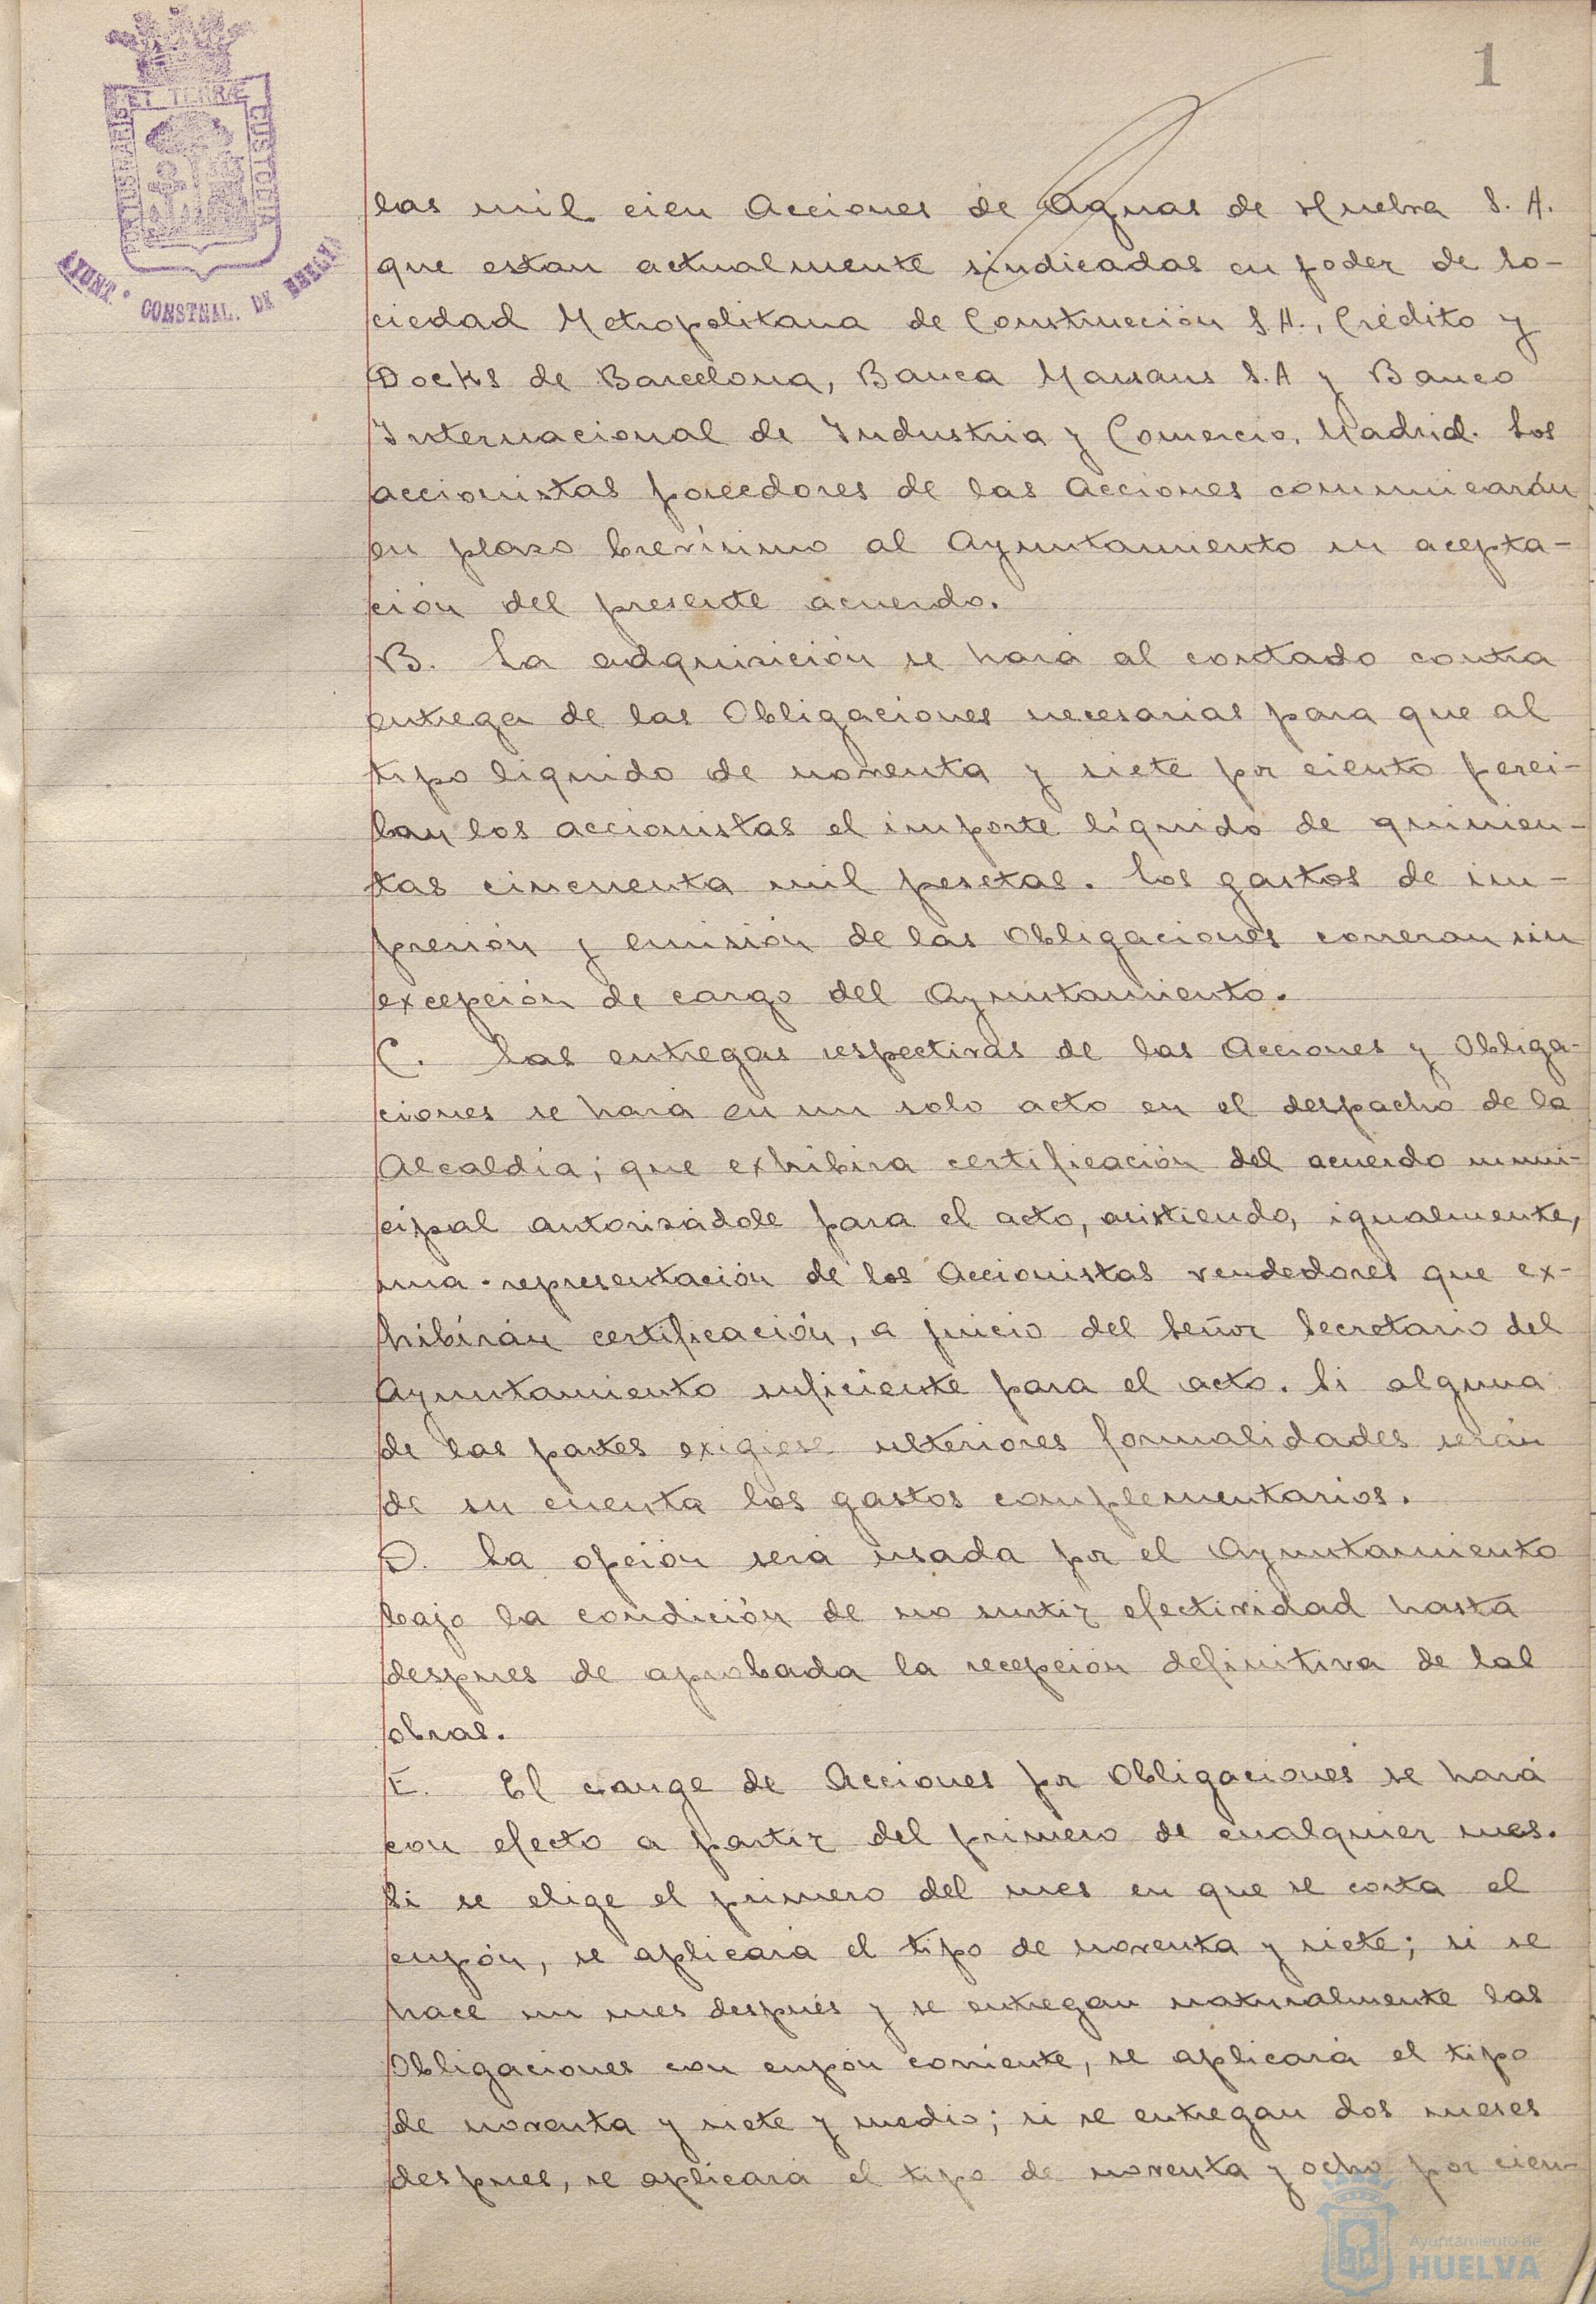 1
PORTUS MARIS
ET TERRÆ
CUSTODIA
AYUNT.º CONSTNAL. DE HUELVA
las mil cien Acciones de Aguas de Huelva S. A.
que estan actualmente sindicadas en poder de So-
ciedad Metropolitana de Construcción S.A., Crédito y
Docks de Barcelona, Banca Marsans S.A y Banco
Internacional de Industria y Comercio, Madrid. Los
accionistas poseedores de las Acciones comunicarán
en plazo brevísimo al Ayuntamiento su acepta-
ción del presente acuerdo.
B. La adquisición se hará al contado contra
entrega de las Obligaciones necesarias para que al
tipo líquido de noventa y siete por ciento perci-
ban los accionistas el importe líquido de quinien-
tas cincuenta mil pesetas. Los gastos de im-
presión y emisión de las Obligaciones correran sin
excepción de cargo del Ayuntamiento.
C. Las entregas respectivas de las Acciones y Obliga-
ciones se hará en un solo acto en el despacho de la
Alcaldía; que exhibira certificación del acuerdo muni-
cipal autorizádole para el acto, asistiendo, igualmente,
una representación de los Accionistas vendedores que ex-
hibirán certificación, a juicio del Señor Secretario del
Ayuntamiento suficiente para el acto. Si alguna
de las partes exigiese ulteriores formalidades serán
de su cuenta los gastos complementarios.
D. La opción será usada por el Ayuntamiento
bajo la condición de no surtir efectividad hasta
despues de aprobada la recepción definitiva de las
obras.
E. El cange de Acciones por Obligaciones se hará
con efecto a partir del primero de cualquier mes.
Si se elige el primero del mes en que se corta el
cupón, se aplicará el tipo de noventa y siete; si se
hace un mes después y se entregan naturalmente las
Obligaciones con cupón corriente, se aplicará el tipo
de noventa y siete y medio; si se entregan dos meses
despues, se aplicará el tipo de noventa y ocho por cien-
Ayuntamiento de
HUELVA